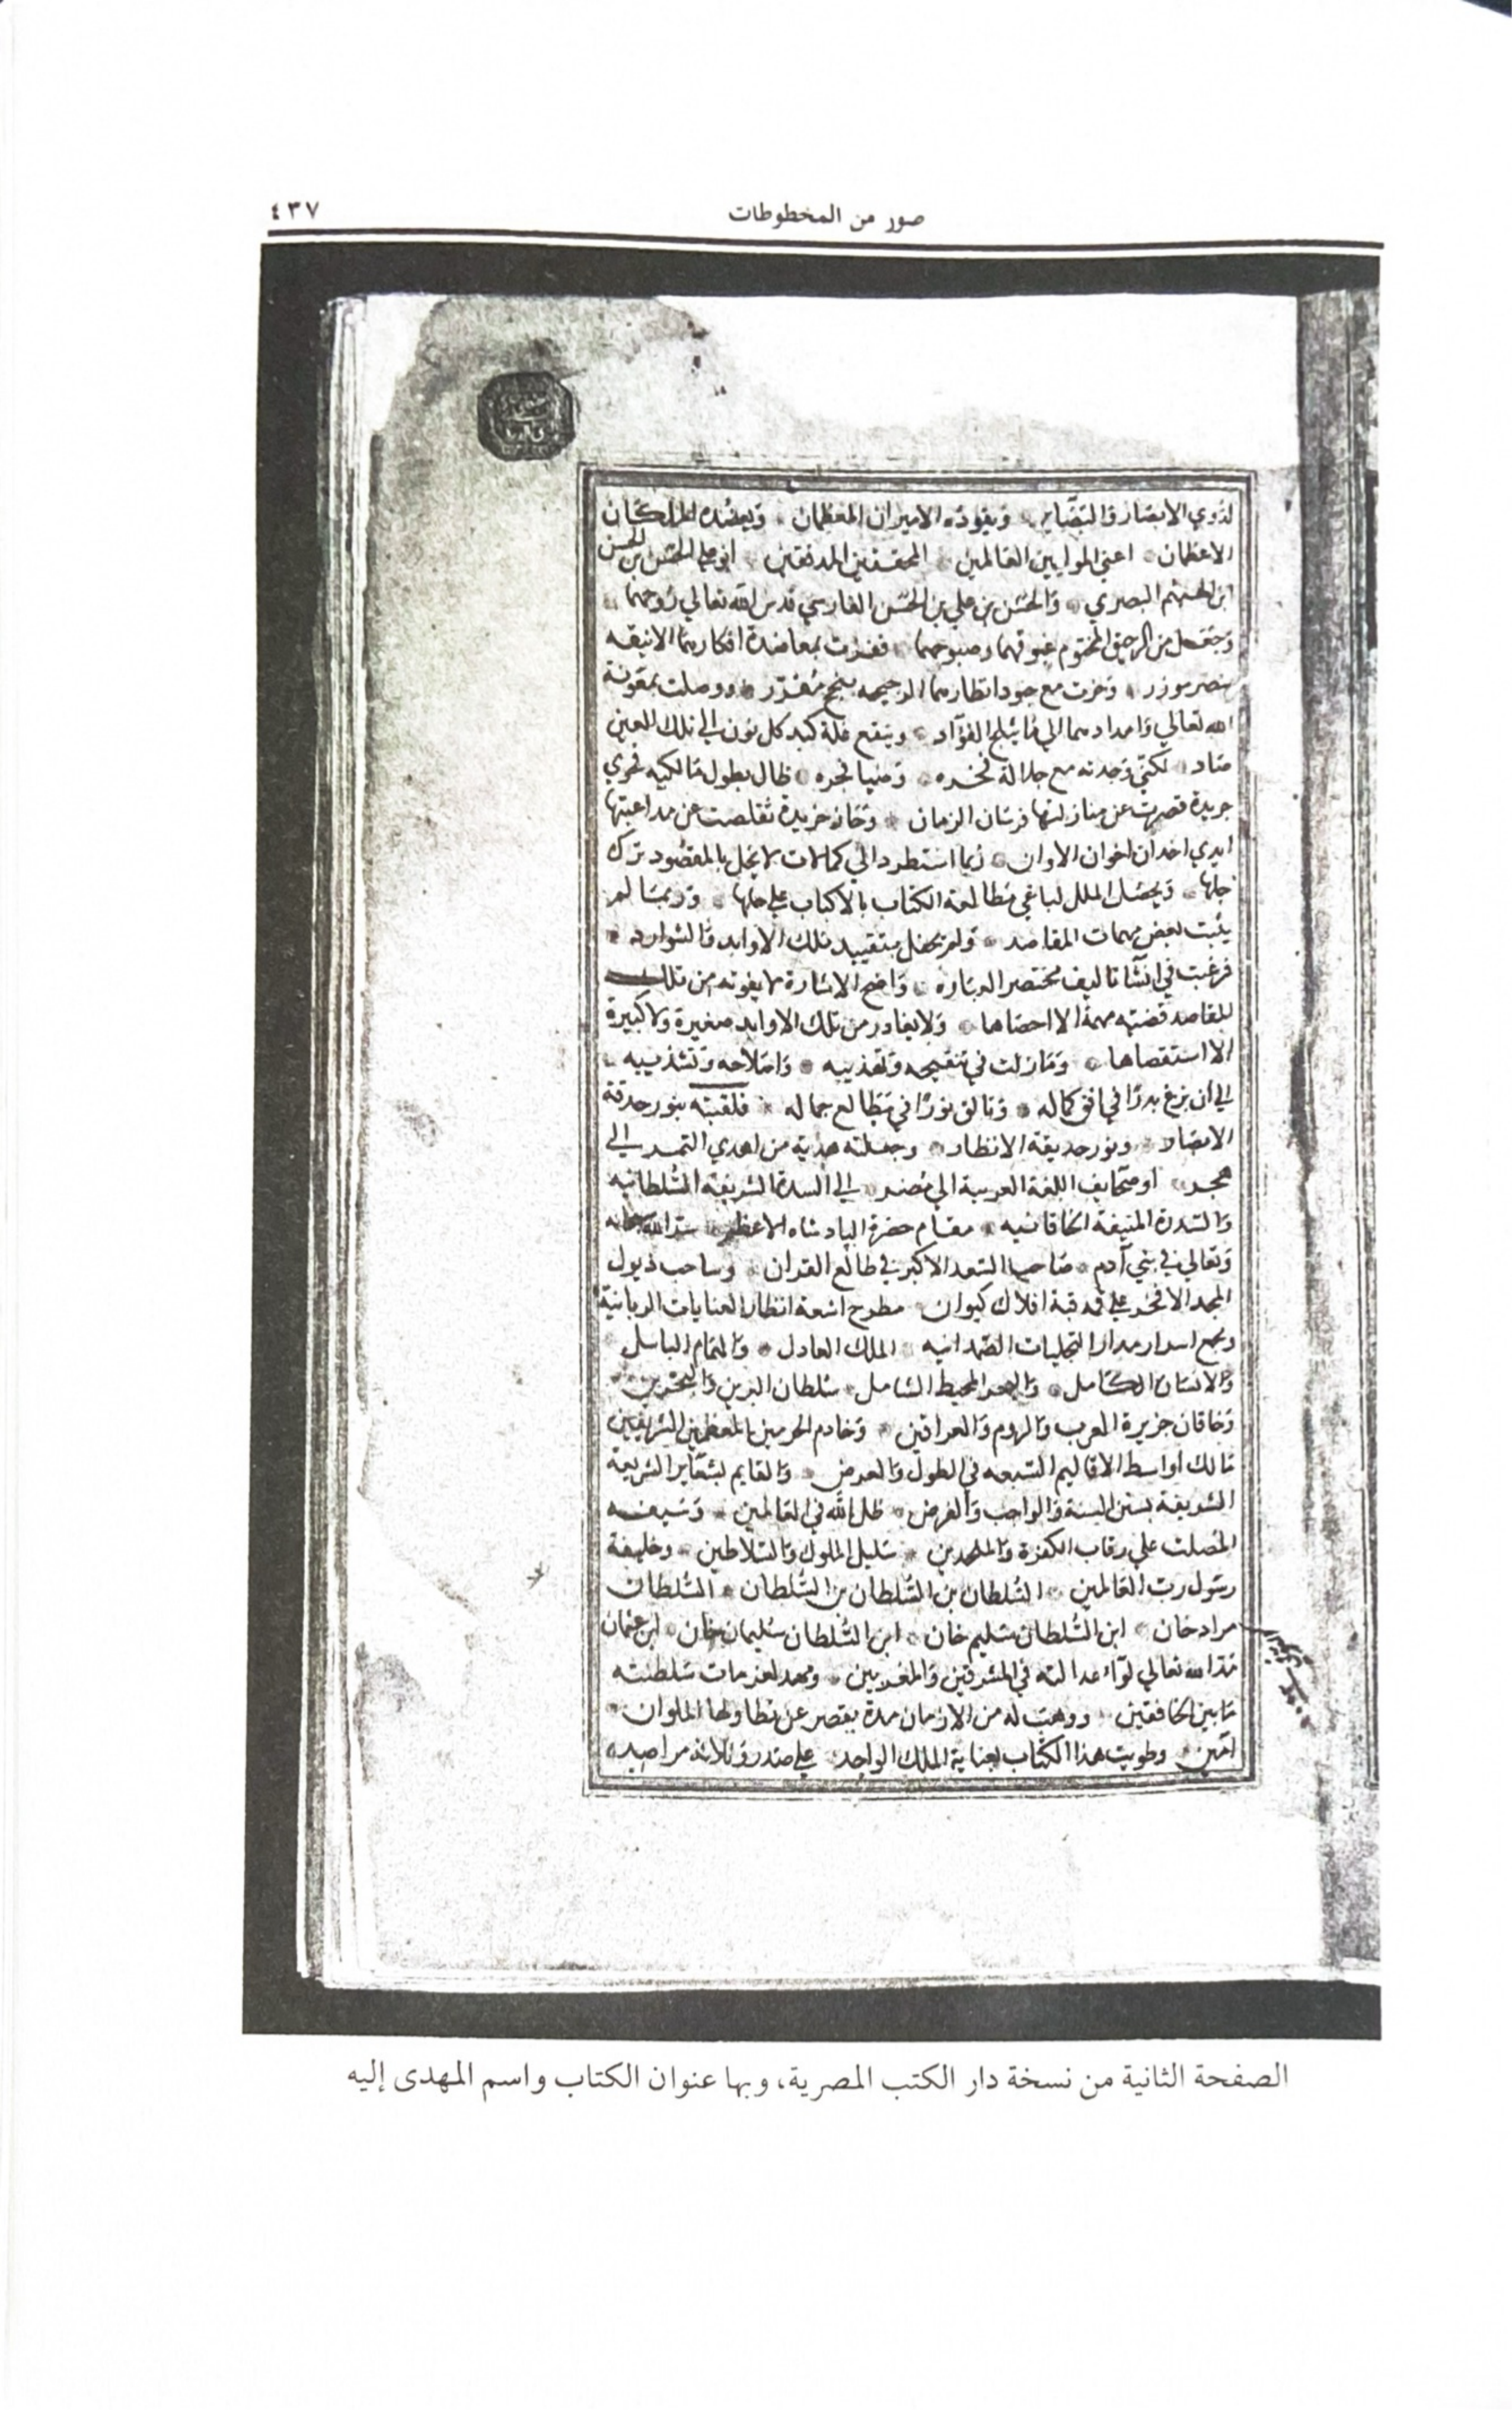 ٤٣٧
صور من المخطوطات
لذوي الابصار والبصاير ويقوده الاميران المعظمان ويعضده الملكان
الاعظمان اعني الموليين العالمين المحققين المدققين ابو علي الحسن بن الحسن
ابن الهيثم البصري والحسن بن علي بن الحسن الفارسي قدس الله تعالي روحهما
وجعل من الرحيق المختوم غبوقهما وصبوحهما ففزت بمعاضدة افكارهما الانيقه
بنصر موزر وحزت مع جود انظارهما الرجيحه بنجح مقدر ووصلت بمعونة
الله تعالي وامدادهما الي ما يثلج الفؤاد وينقع غلة كبد كل نون الي تلك العين
صاد لكني وجدته مع جلالة وضيا فجره طال بطول مالكيه فحوي
جريدة قصرت عن منازلتها فرسان الزمان وخان خريدة تقلصت عن مداعبتها
ايدي اخدان اخوان الاوان ربما استطرد الي كمالات لا يخل بالمقصود ترك
جلها ويحصل الملل لباغي مطالعة الكتاب بالاكباب علي حلها وربما لم
يثبت بعض مهمات المقاصد ولم يحفل بتقييد تلك الاوابد والشوارد
فرغبت في انشا تاليف مختصر العباره واضح الاشارة لا يفوته من تلك
المقاصد قضية مهمة الا احصاها ولا يغادر من تلك الاوابد صغيرة ولا كبيرة
الا استقصاها وما زلت في تنقيحه وتهذيبه واصلاحه وتشذيبه
الي ان بزغ بدرًا في افق كماله وتالق نورًا في مطالع جماله فلقبته بنور حدقة
الابصار ونور حديقة الانظار وجعلته هدية من اهدي التمر الي
هجر او صحايف اللغة العربية الي مضر الي السدة الشريفة السلطانيه
والسدرة المنيفة الخاقانيه مقام حضرة البادشاه الاعظم سر الله سبحانه
وتعالي في بني آدم صاحب السعد الاكبر في طالع القران وساحب ذيول
المجد الافخر علي قمة قبة افلاك كيوان مطرح اشعة انظار العنايات الربانية
ومجمع اسرار مدار التجليات الصمدانيه الملك العادل والهمام الباسل
والانسان الكامل والبحر المحيط الشامل سلطان البرين والبحرين
وخاقان جزيرة العرب والروم والعراقين وخادم الحرمين المعظمين الشريفين
مالك اواسط الاقاليم السبعه في الطول والعرض والقايم بشعاير الشريعة
الشريفة بسنن السنة والواجب والفرض ظل الله في العالمين وسيفه
المصلت علي رقاب الكفرة والملحدين سليل الملوك والسلاطين وخليفة
رسول رب العالمين السلطان بن السلطان بن السلطان السلطان
مراد خان ابن السلطان سليم خان ابن السلطان سليمان خان ابن عثمان
مد الله تعالي لوآء عدالته في المشرقين والمغربين ومهد لعزمات سلطنته
ما بين الخافقين ووهب له من الازمان مدة يقصر عن تطاولها الملوان
آمين وطويت هذا الكتاب بعناية الملك الواحد علي صدر وثلاثة مراصد
الصفحة الثانية من نسخة دار الكتب المصرية، وبها عنوان الكتاب واسم المهدى إليه